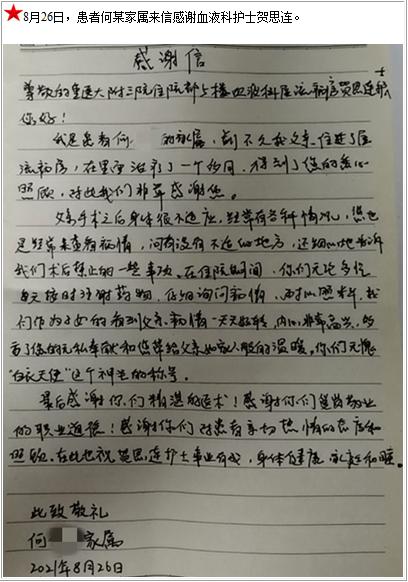 ★8月26日，患者何某家属来信感谢血液科护士贺思连。
感谢信
尊敬的重医大附三院住院部5楼血液科层流病房贺思连护士
您好！
我是患者何 的家属，前不久我父亲住进了层
流病房，在里面治疗了一个多月，得到了您的悉心
照顾，对此我们非常感谢您。
父亲手术之后身体很不适应，经常有各种情况，您也
是经常来查看病情，问有没有不适的地方，还细心地告诉
我们术后禁止的一些事项。在住院期间，你们无论多忙
每天按时注射药物，仔细询问病情，
们作为子女的看到父亲病情一天天好转，内心非常高兴，
了您的无私奉献和您带给父亲如家人般的温暖。你们无愧
"白衣天使"这个神圣的称号。
最后感谢你们精湛的医术！感谢你们爱岗敬业
的职业道德！感谢你们对患者亲切热情的态度和
照顾。在此也祝贺思连护士事业有成，身体健康，家庭和睦。
此致敬礼
何 家属
2021年8月26日